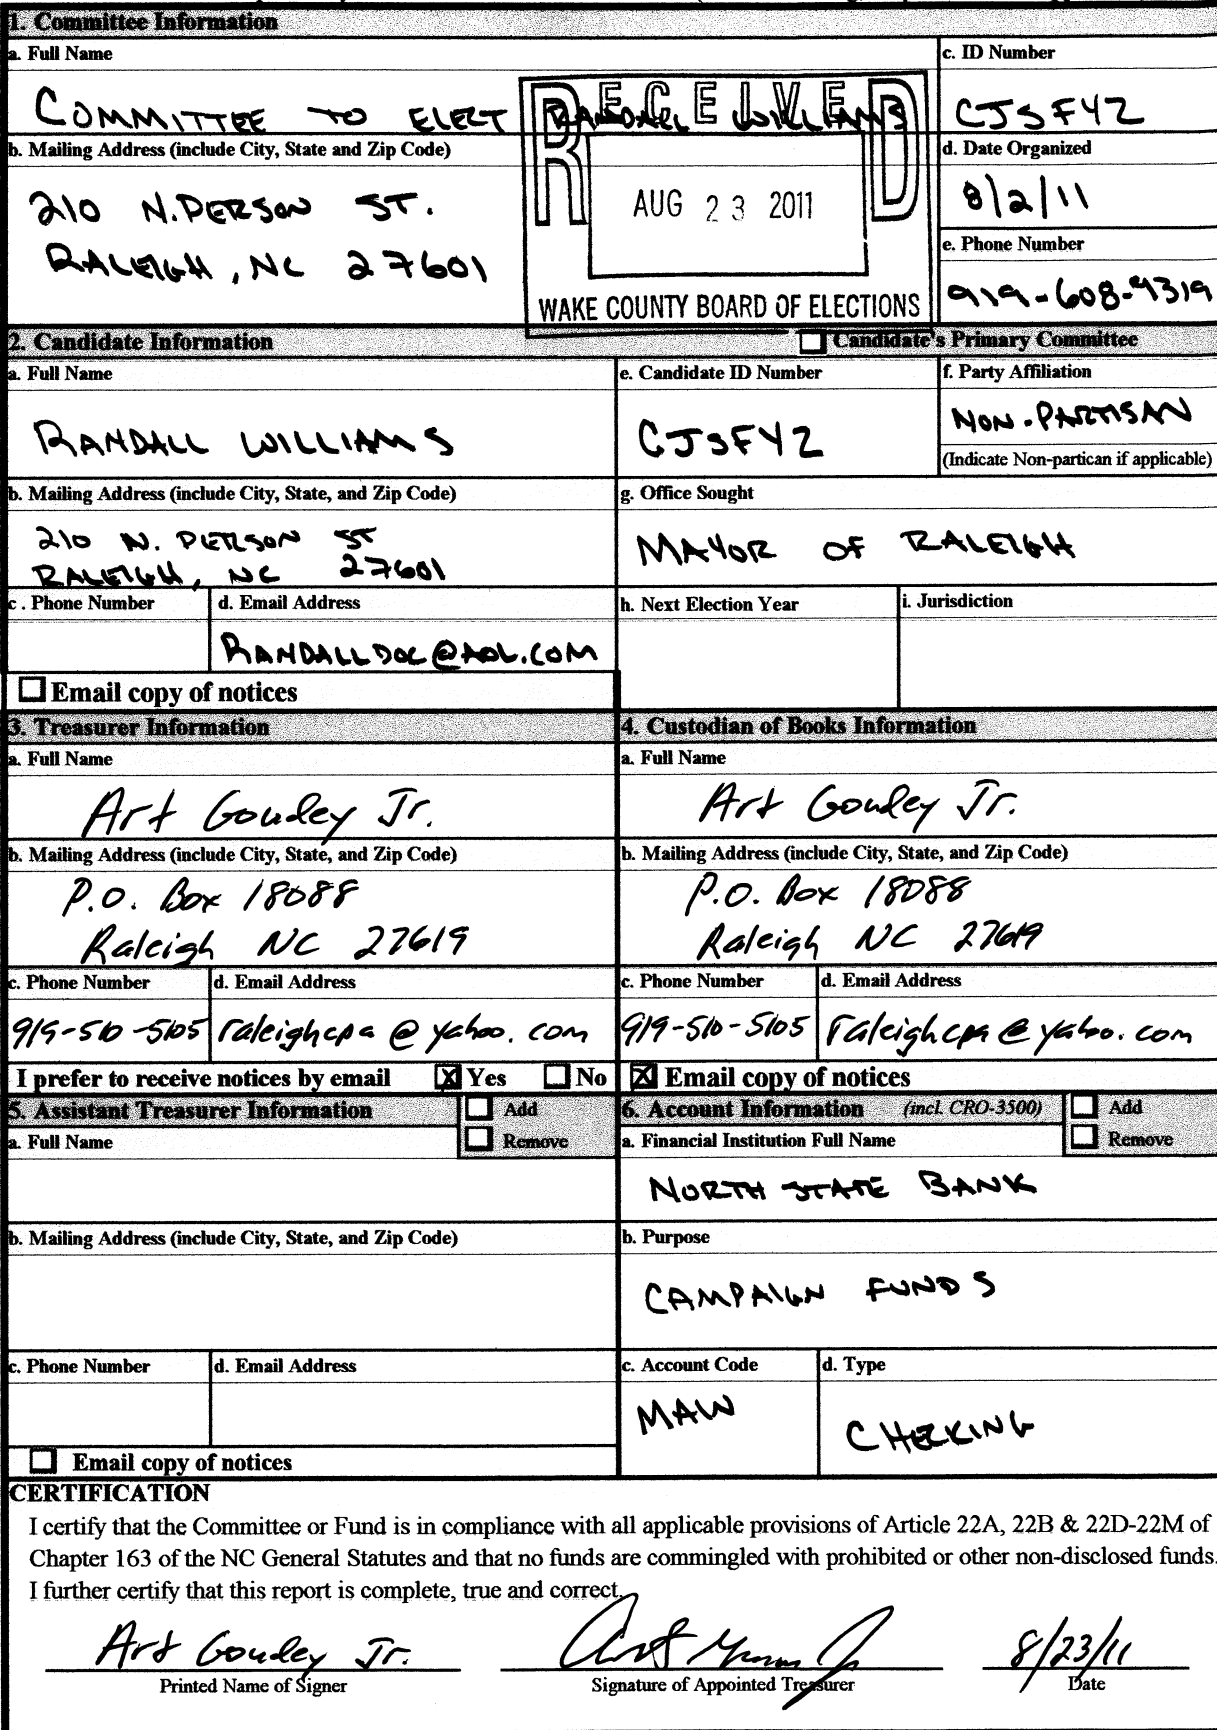 1. Committee Information
a. Full Name
c. ID Number
COMMITTEE TO ELECT RANDALL WILLIAMS
CJSFYZ
RECEIVED
AUG 23 2011
WAKE COUNTY BOARD OF ELECTIONS
b. Mailing Address (include City, State and Zip Code)
210 N. PERSON ST.
RALEIGH, NC 27601
d. Date Organized
8/2/11
e. Phone Number
919-608-9319
2. Candidate Information
Candidate's Primary Committee
a. Full Name
RANDALL WILLIAMS
e. Candidate ID Number
CJSFYZ
f. Party Affiliation
NON-PARTISAN
(Indicate Non-partican if applicable)
b. Mailing Address (include City, State, and Zip Code)
210 N. PERSON ST
RALEIGH, NC 27601
g. Office Sought
MAYOR OF RALEIGH
c . Phone Number
d. Email Address
RANDALLDOC@AOL.COM
h. Next Election Year
i. Jurisdiction
Email copy of notices
3. Treasurer Information
a. Full Name
Art Gouley Jr.
b. Mailing Address (include City, State, and Zip Code)
P.O. Box 18088
Raleigh NC 27619
c. Phone Number
d. Email Address
919-510-5105
raleighcpa@yahoo.com
I prefer to receive notices by email
X Yes
No
4. Custodian of Books Information
a. Full Name
Art Gouley Jr.
b. Mailing Address (include City, State, and Zip Code)
P.O. Box 18088
Raleigh NC 27619
c. Phone Number
d. Email Address
919-510-5105
raleighcpa@yahoo.com
X Email copy of notices
5. Assistant Treasurer Information
Add
Remove
a. Full Name
b. Mailing Address (include City, State, and Zip Code)
c. Phone Number
d. Email Address
Email copy of notices
6. Account Information (incl. CRO-3500)
Add
Remove
a. Financial Institution Full Name
NORTH STATE BANK
b. Purpose
CAMPAIGN FUNDS
c. Account Code
MAW
d. Type
CHECKING
CERTIFICATION
I certify that the Committee or Fund is in compliance with all applicable provisions of Article 22A, 22B & 22D-22M of
Chapter 163 of the NC General Statutes and that no funds are commingled with prohibited or other non-disclosed funds.
I further certify that this report is complete, true and correct.
Art Gouley Jr.
8/23/11
Printed Name of Signer
Signature of Appointed Treasurer
Date